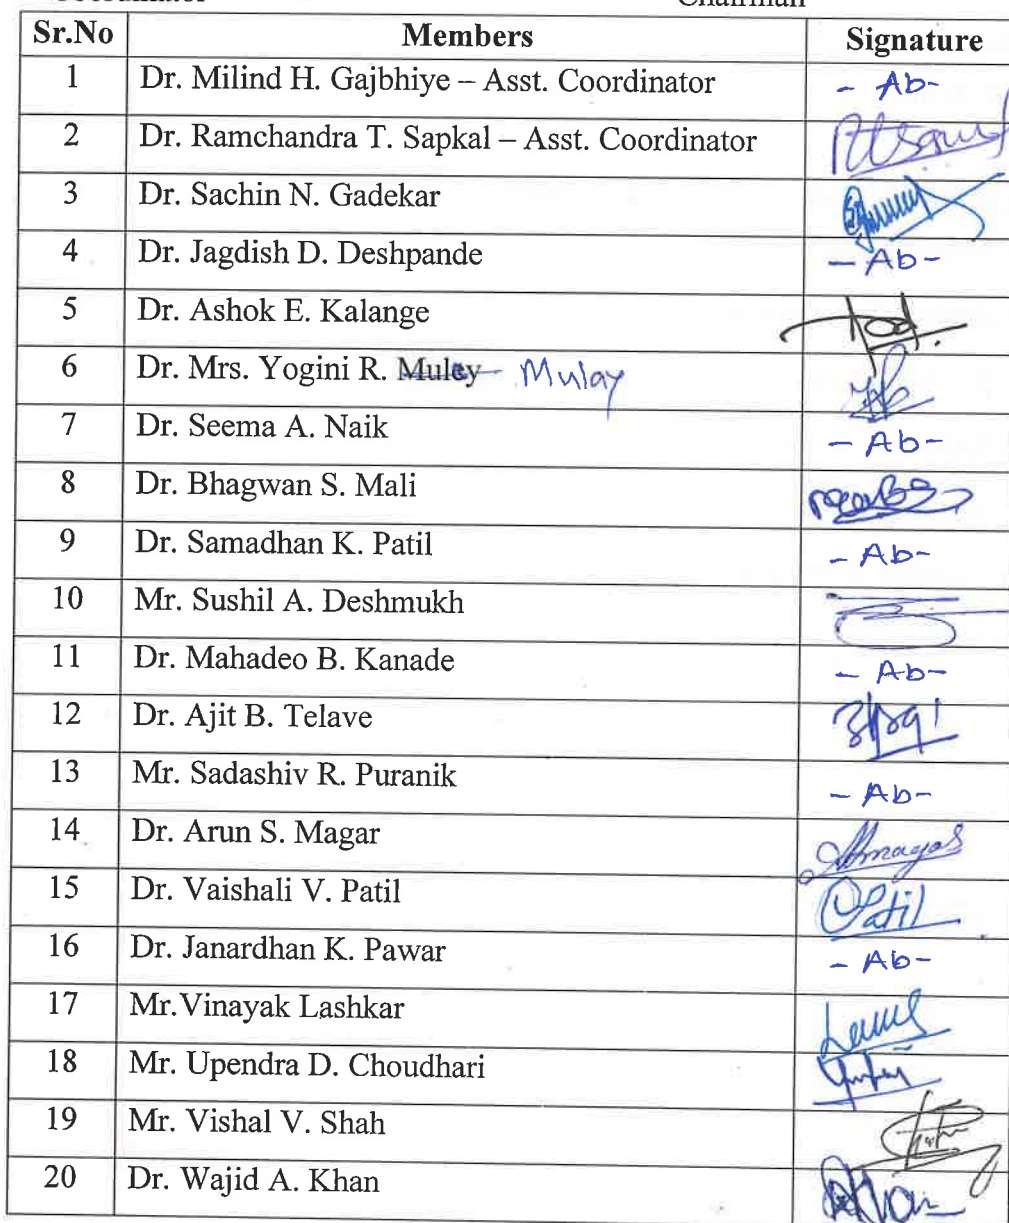 Chairman
Sr.No Members Signature
1 Dr. Milind H. Gajbhiye – Asst. Coordinator - Ab-
2 Dr. Ramchandra T. Sapkal – Asst. Coordinator
3 Dr. Sachin N. Gadekar
4 Dr. Jagdish D. Deshpande - Ab-
5 Dr. Ashok E. Kalange
6 Dr. Mrs. Yogini R. Muley Mulay
7 Dr. Seema A. Naik - Ab-
8 Dr. Bhagwan S. Mali
9 Dr. Samadhan K. Patil - Ab-
10 Mr. Sushil A. Deshmukh
11 Dr. Mahadeo B. Kanade - Ab-
12 Dr. Ajit B. Telave
13 Mr. Sadashiv R. Puranik - Ab-
14 Dr. Arun S. Magar
15 Dr. Vaishali V. Patil Patil
16 Dr. Janardhan K. Pawar - Ab-
17 Mr.Vinayak Lashkar
18 Mr. Upendra D. Choudhari
19 Mr. Vishal V. Shah
20 Dr. Wajid A. Khan